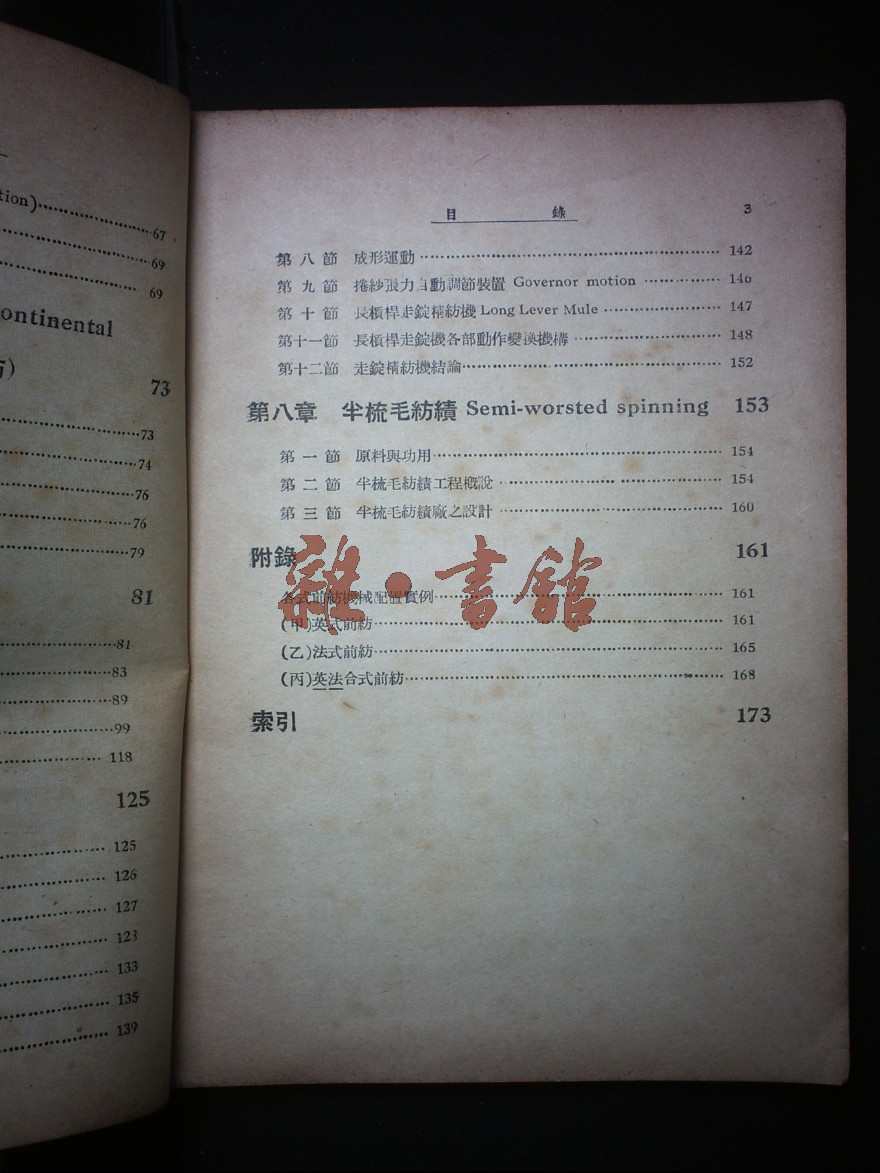 tion) 67
69
69
ontinental
73
73
74
76
76
79
81
81
83
89
99
118
125
125
126
127
123
133
135
139
目 錄 3
第八節 成形運動 142
第九節 捲紗張力自動調節裝置 Governor motion 146
第十節 長槓桿走錠精紡機 Long Lever Mule 147
第十一節 長槓桿走錠機各部動作變換機構 148
第十二節 走錠精紡機結論 152
第八章 半梳毛紡績 Semi-worsted spinning 153
第一節 原料與功用 154
第二節 半梳毛紡績工程概說 154
第三節 半梳毛紡績廠之設計 160
附錄 161
各式前紡機械配置實例 161
(甲)英式前紡 161
(乙)法式前紡 165
(丙)英法合式前紡 168
索引 173
雜·書館